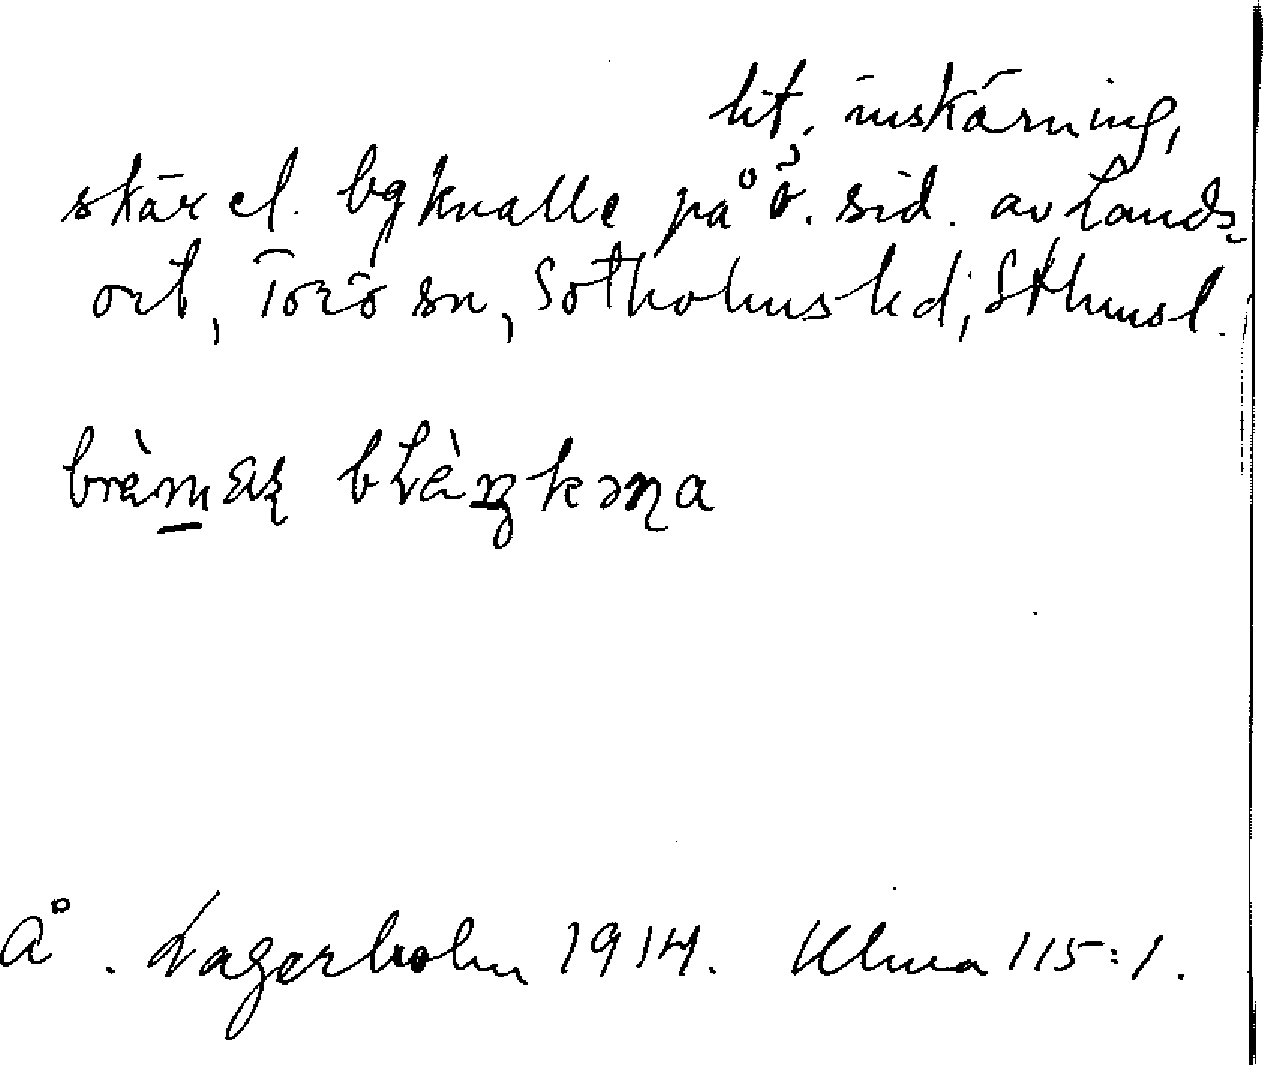 lit. inskärning,
skär el. bgknalle på ö. sid. av Lands-
ort, Torö sn, Sotholms hd, Sthmsl.
bràmaʂ bLàŋkəɳa
Å. Lagerholm 1914. Ulma 115:1.